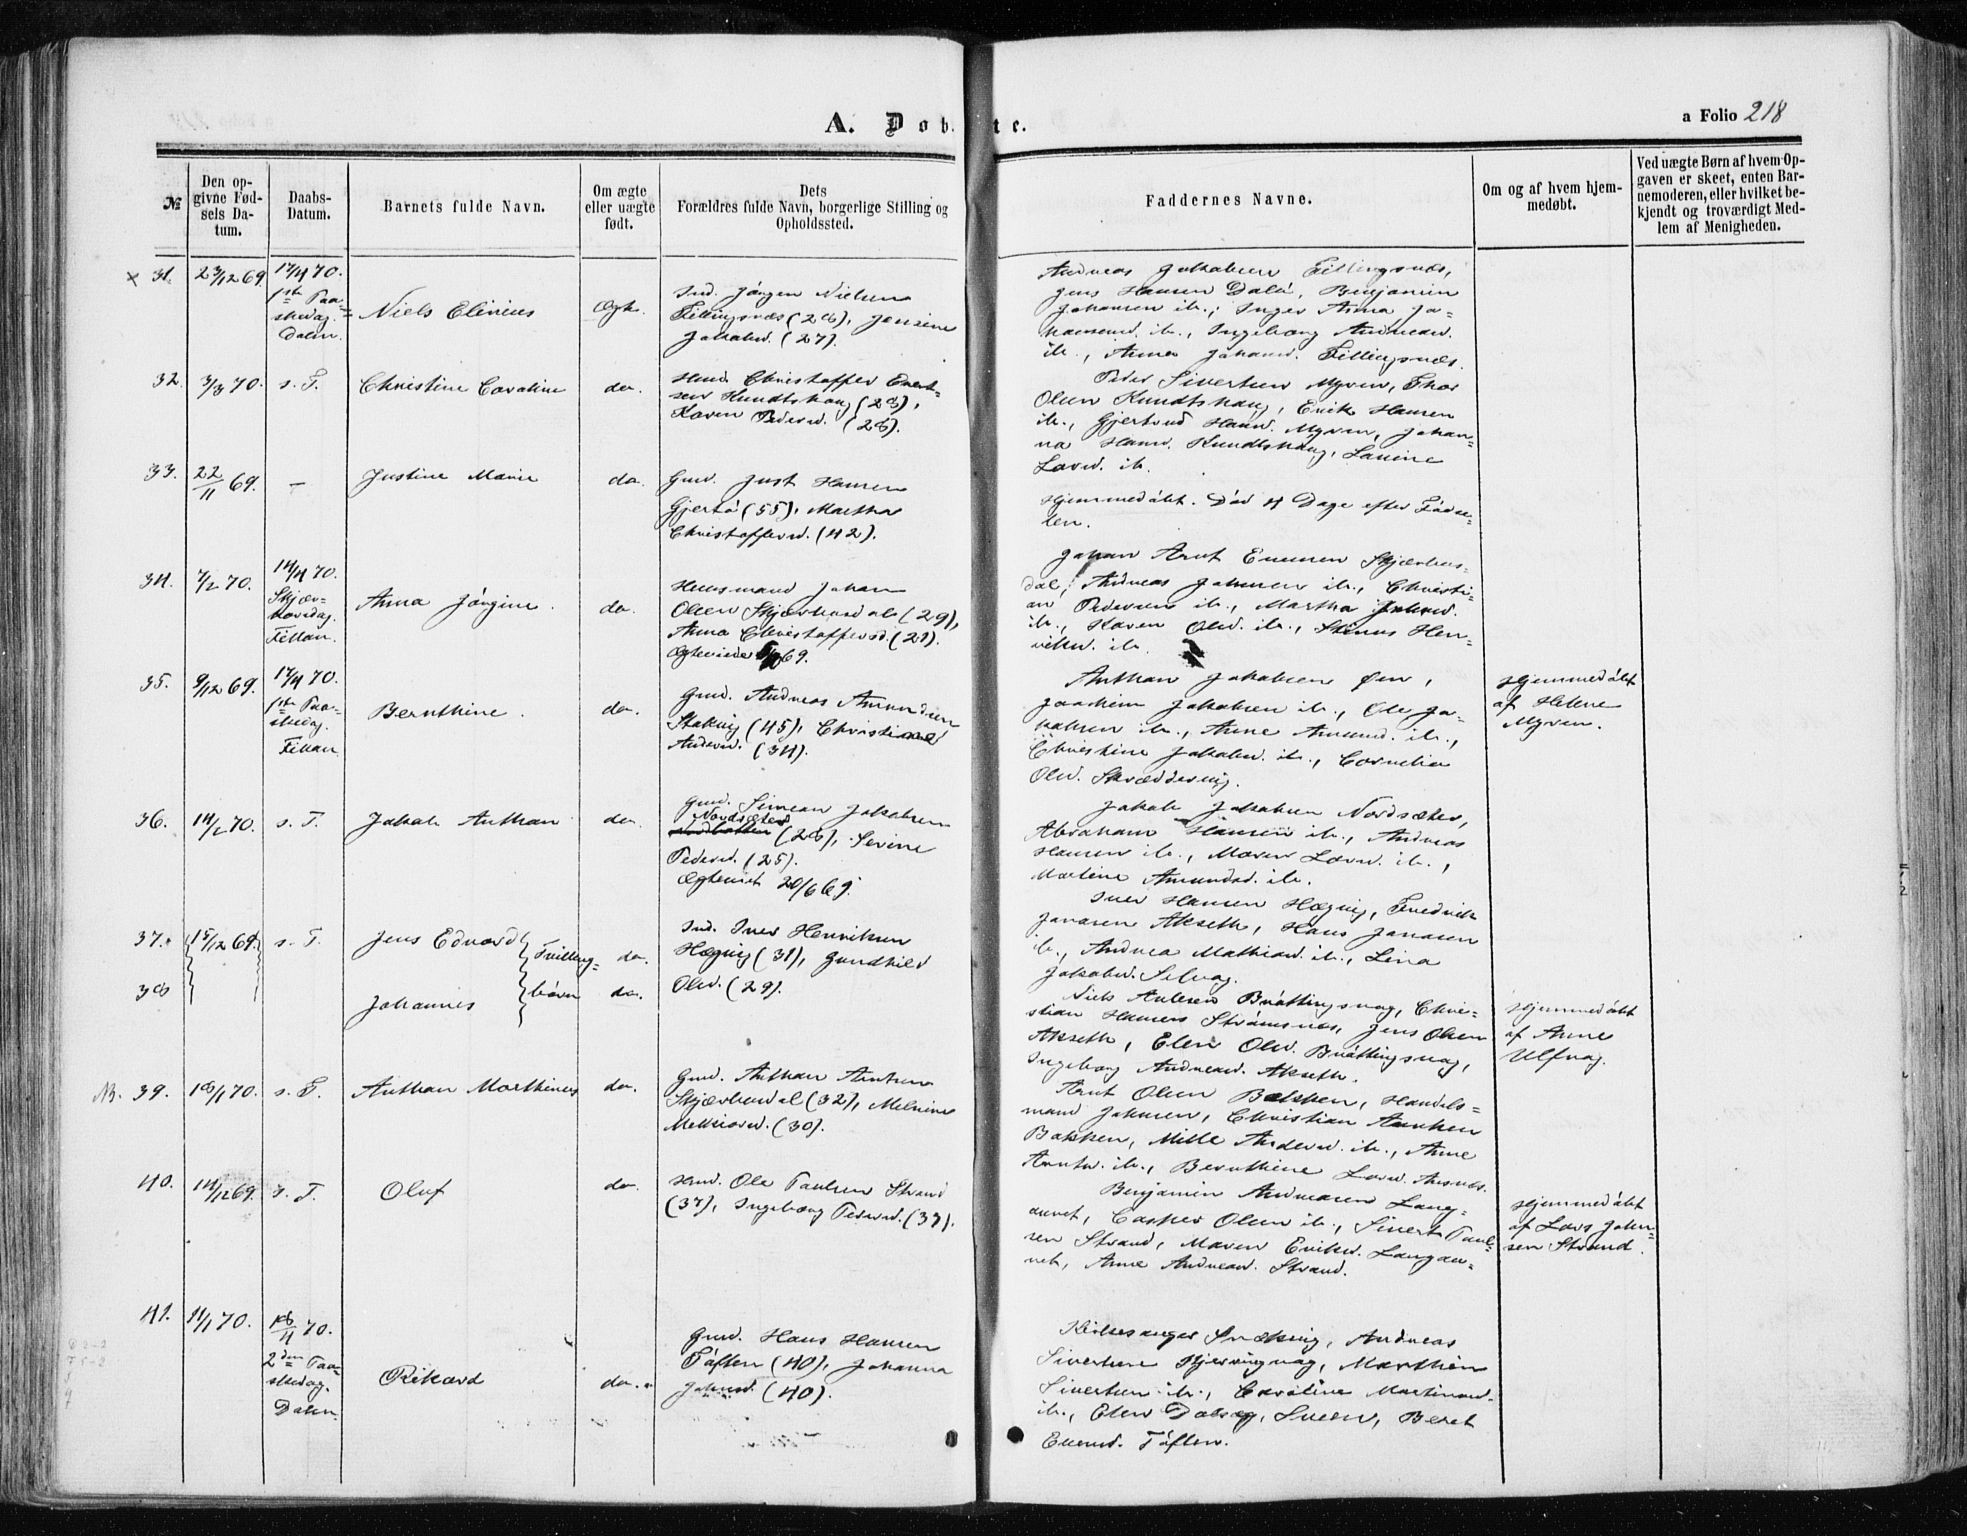 A. Døbte.
a Folio 218
№
Den op-
givne Fød-
sels Da-
tum.
Daabs-
Datum.
Barnets fulde Navn.
Om ægte
eller uægte
født.
Dets
Forældres fulde Navn, borgerlige Stilling og
Opholdssted.
Faddernes Navne.
Om og af hvem hjem-
medøbt.
Ved uægte Børn af hvem Op-
gaven er skeet, enten Bar-
nemoderen, eller hvilket be-
kjendt og troværdigt Med-
lem af Menigheden.
31.
23/12 69
17/4 70.
1ste Paa-
skedag.
Dalen.
Niels
Ægte.
Ind. Jørgen Nielsen
Fillingsnæs (28), Jensine
Jakobsd. (27).
Andreas Jakobsen Fillingsnæs,
Jens Hansen Dalø, Benjamin
Johansen ib., Inger Anna Jo-
hansend. ib., Ingeborg Andreasd.
ib., Anna Johansd. Fillingsnæs.
32.
3/3 70.
s. T.
Christine Caroline
do.
Husm. Christoffer Evert-
sen Kundtshaug (28),
Karen Pedersd. (28).
Peder Sivertsen Myren, Thor
Olsen Kundtshaug, Erik Hansen
ib., Gjertrud Hansd. Myren, Johan-
na Hansd. Kundtshaug, Lauine
Larsd. ib.
33.
22/11 69.
—
Justine Marie
do.
Gmd. Just Hansen
Gjertø (55), Martha
Christoffersd. (42).
Hjemmedøbt. Død 4 Dage efter Fødse-
len.
34.
7/2 70.
14/4 70.
Skjær-
torsdag.
Fillan.
Anna Jørgine.
do.
Huusmand Johan
Olsen Skjærhusdal (29),
Anna Christoffersd. (29).
Ægteviede 69.
Johan Arnt Skjærhus-
dal, Andreas Johnsen ib., Christi-
an Pedersen ib., Martha Johnsd.
ib., Karen Olsd. ib., Stinus Hen-
riksd. ib.
35.
9/12 69.
17/4 70.
1ste Paa-
skedag.
Fillan
Bernthine.
do.
Gmd. Andreas Amundsen
Stakvig (45), Christine
Andersd. (34).
Anthon Jakobsen Øen,
Joachim Jakobsen ib., Ole Ja-
kobsen ib., Anne Amundsd. ib.,
Christine Jakobsd. ib., Cornelia
Olsd. Skreddervig.
Hjemmedøbt
af Helene
Myren.
36.
14/2 70.
s. T.
Jakob Anthon
do.
Gmd. Simeon Jakobsen
Nordsæter
(28), Serine
Pedersd. (25).
Ægteviet 20/6 69.
Jakob Jakobsen Nordsæter,
Abraham Hansen ib., Andreas
Hansen ib., Maren Larsd. ib.,
Marlene Amundsd. ib.
37.
15/12 69.
s. T.
Jens Edvard
Tvilling-
do.
Ind. Iver Henriksen
Hægvig (31), Gundhild
Olsd. (29).
Iver Hansen Hægvig, Fredrik
Jonasen Akseth, Hans Jonasen
ib., Andrea Mathiasd. ib., Lina
Jakobsd. Selvag.
38
Johannes
børn
do.
Niels Antonsen Bnøttingsvag, Chri-
stian Hansen Strømsnes, Jens Olsen
Akseth, Elen Olsd. Bnøttingsvag,
Ingeborg Andreasd. Akseth.
Hjemmedøbt
af Anne
Ulfvag.
NB. 39.
18/1 70.
s. T.
Anthon Marthinus
do.
Gmd. Anthon Arntsen
Skjærhusdal (32), Melvine
Melkiorsd. (30).
Arnt Olsen Bakken, Handels-
mand Johnsen, Christian Arntsen
Bakken, Mille Andersd. ib., Anne
Arntsd. ib., Bernthine Larsd. Aasnæs.
40.
14/12 69.
s. T.
Oluf
do.
Husm. Ole Paulsen Strand
(37), Ingeborg Pedersd. (37).
Benjamin Andreasen Lang-
auret, Casper Olsen ib., Sivert Paul-
sen Strand, Maren Eriksd. Langau-
ret, Anne Andreasd. Strand.
Hjemmedøbt
af Lars John-
sen Strand.
41.
11/1 70.
18/4 70.
2den Paa-
skedag.
Dalen.
Rikard
do.
Gmd. Hans Hansen
Tøften (40), Johanna
Johnsd. (40).
Kirkesanger Andreas
Sivertsen Bjerringvag, Marthin
Sivertsen ib., Caroline Martinusd.
ib., Elen Beret
Tøften.